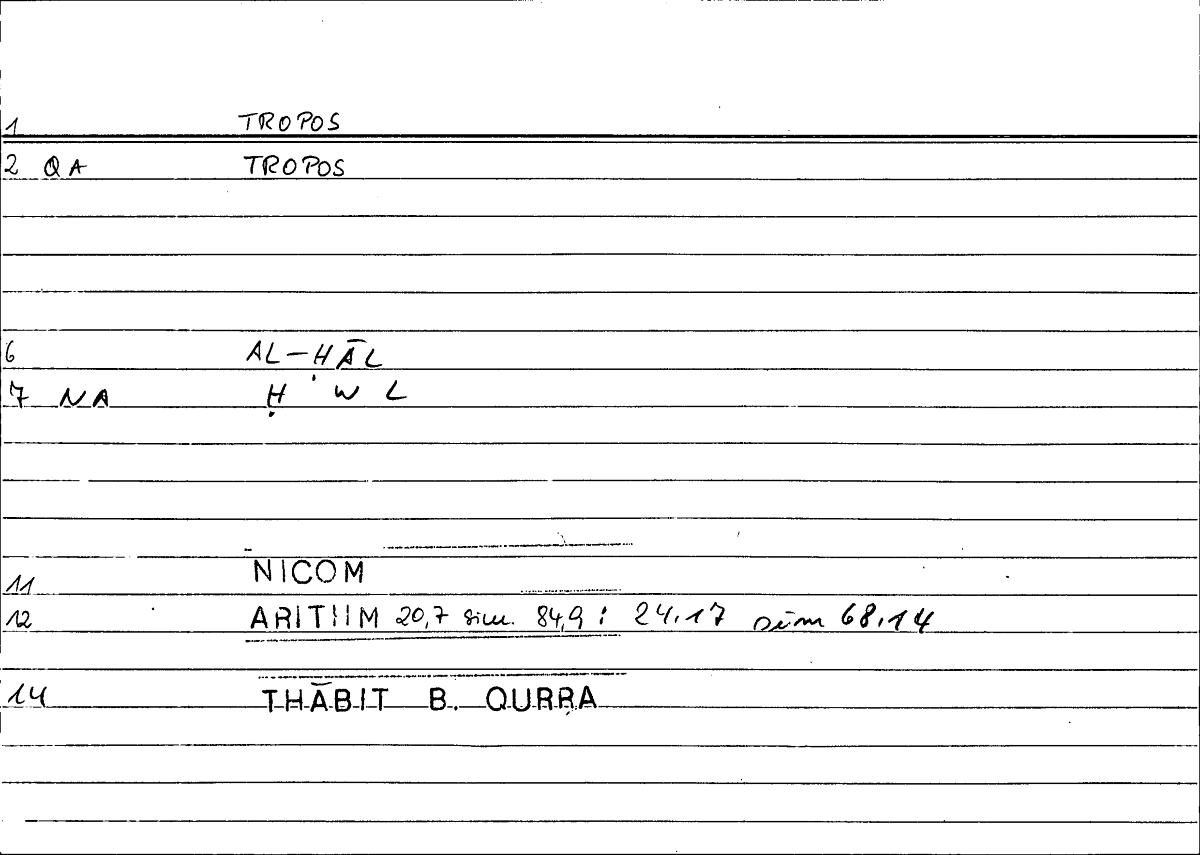 1 TROPOS
2 QA TROPOS
6 AL-ḤĀL
7 NA Ḥ W L
11 NICOM
12 ARITHM 20,7 sim. 84,9; 24.17 sim 68.14
14 THĀBIT B. QURRA